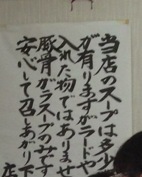 当店のスープは多少
が有りますがラードや
入れた物ではありませ
豚骨ガラスープのみです
安心して召しあがり下
店